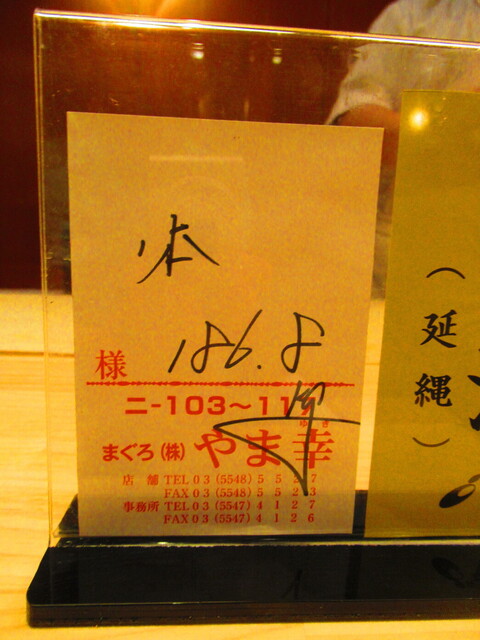 本
186.8
様
ニ-103〜11
まぐろ(株)やま幸
ゆき
店舗 TEL 03 (5548) 5 5 2 7
FAX 03 (5548) 5 5 2 3
事務所 TEL 03 (5547) 4 1 2 7
FAX 03 (5547) 4 1 2 6
(延縄)